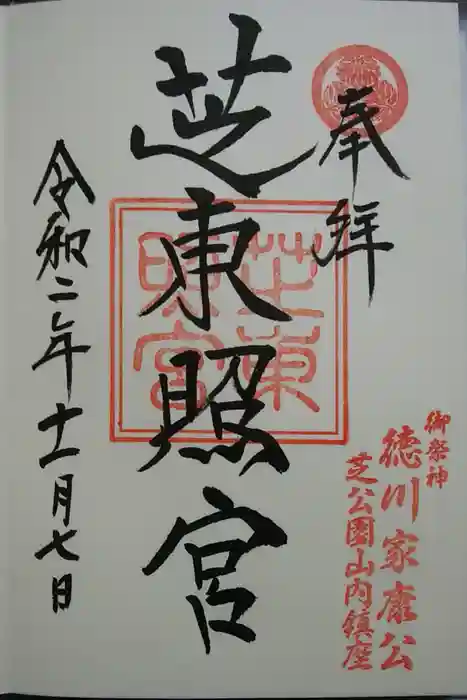 奉拝
御祭神
徳川家康公
芝公園山内鎮座
芝東照宮
芝東照宮
令和二年十一月七日